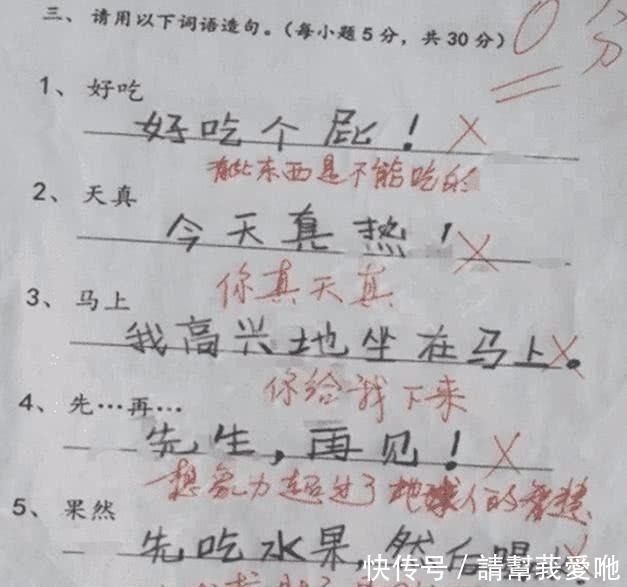 三、请用以下词语造句。（每小题5分，共30分） 0分
1、好吃
好吃个屁！
有些东西是不能吃的
2、天真
今天真热！
你真天真
3、马上
我高兴地坐在马上。
你给我下来
4、先…再…
先生，再见！
想象力超过了地球人的智慧
5、果然
先吃水果，然后喝
快传号／請幫莪愛吔